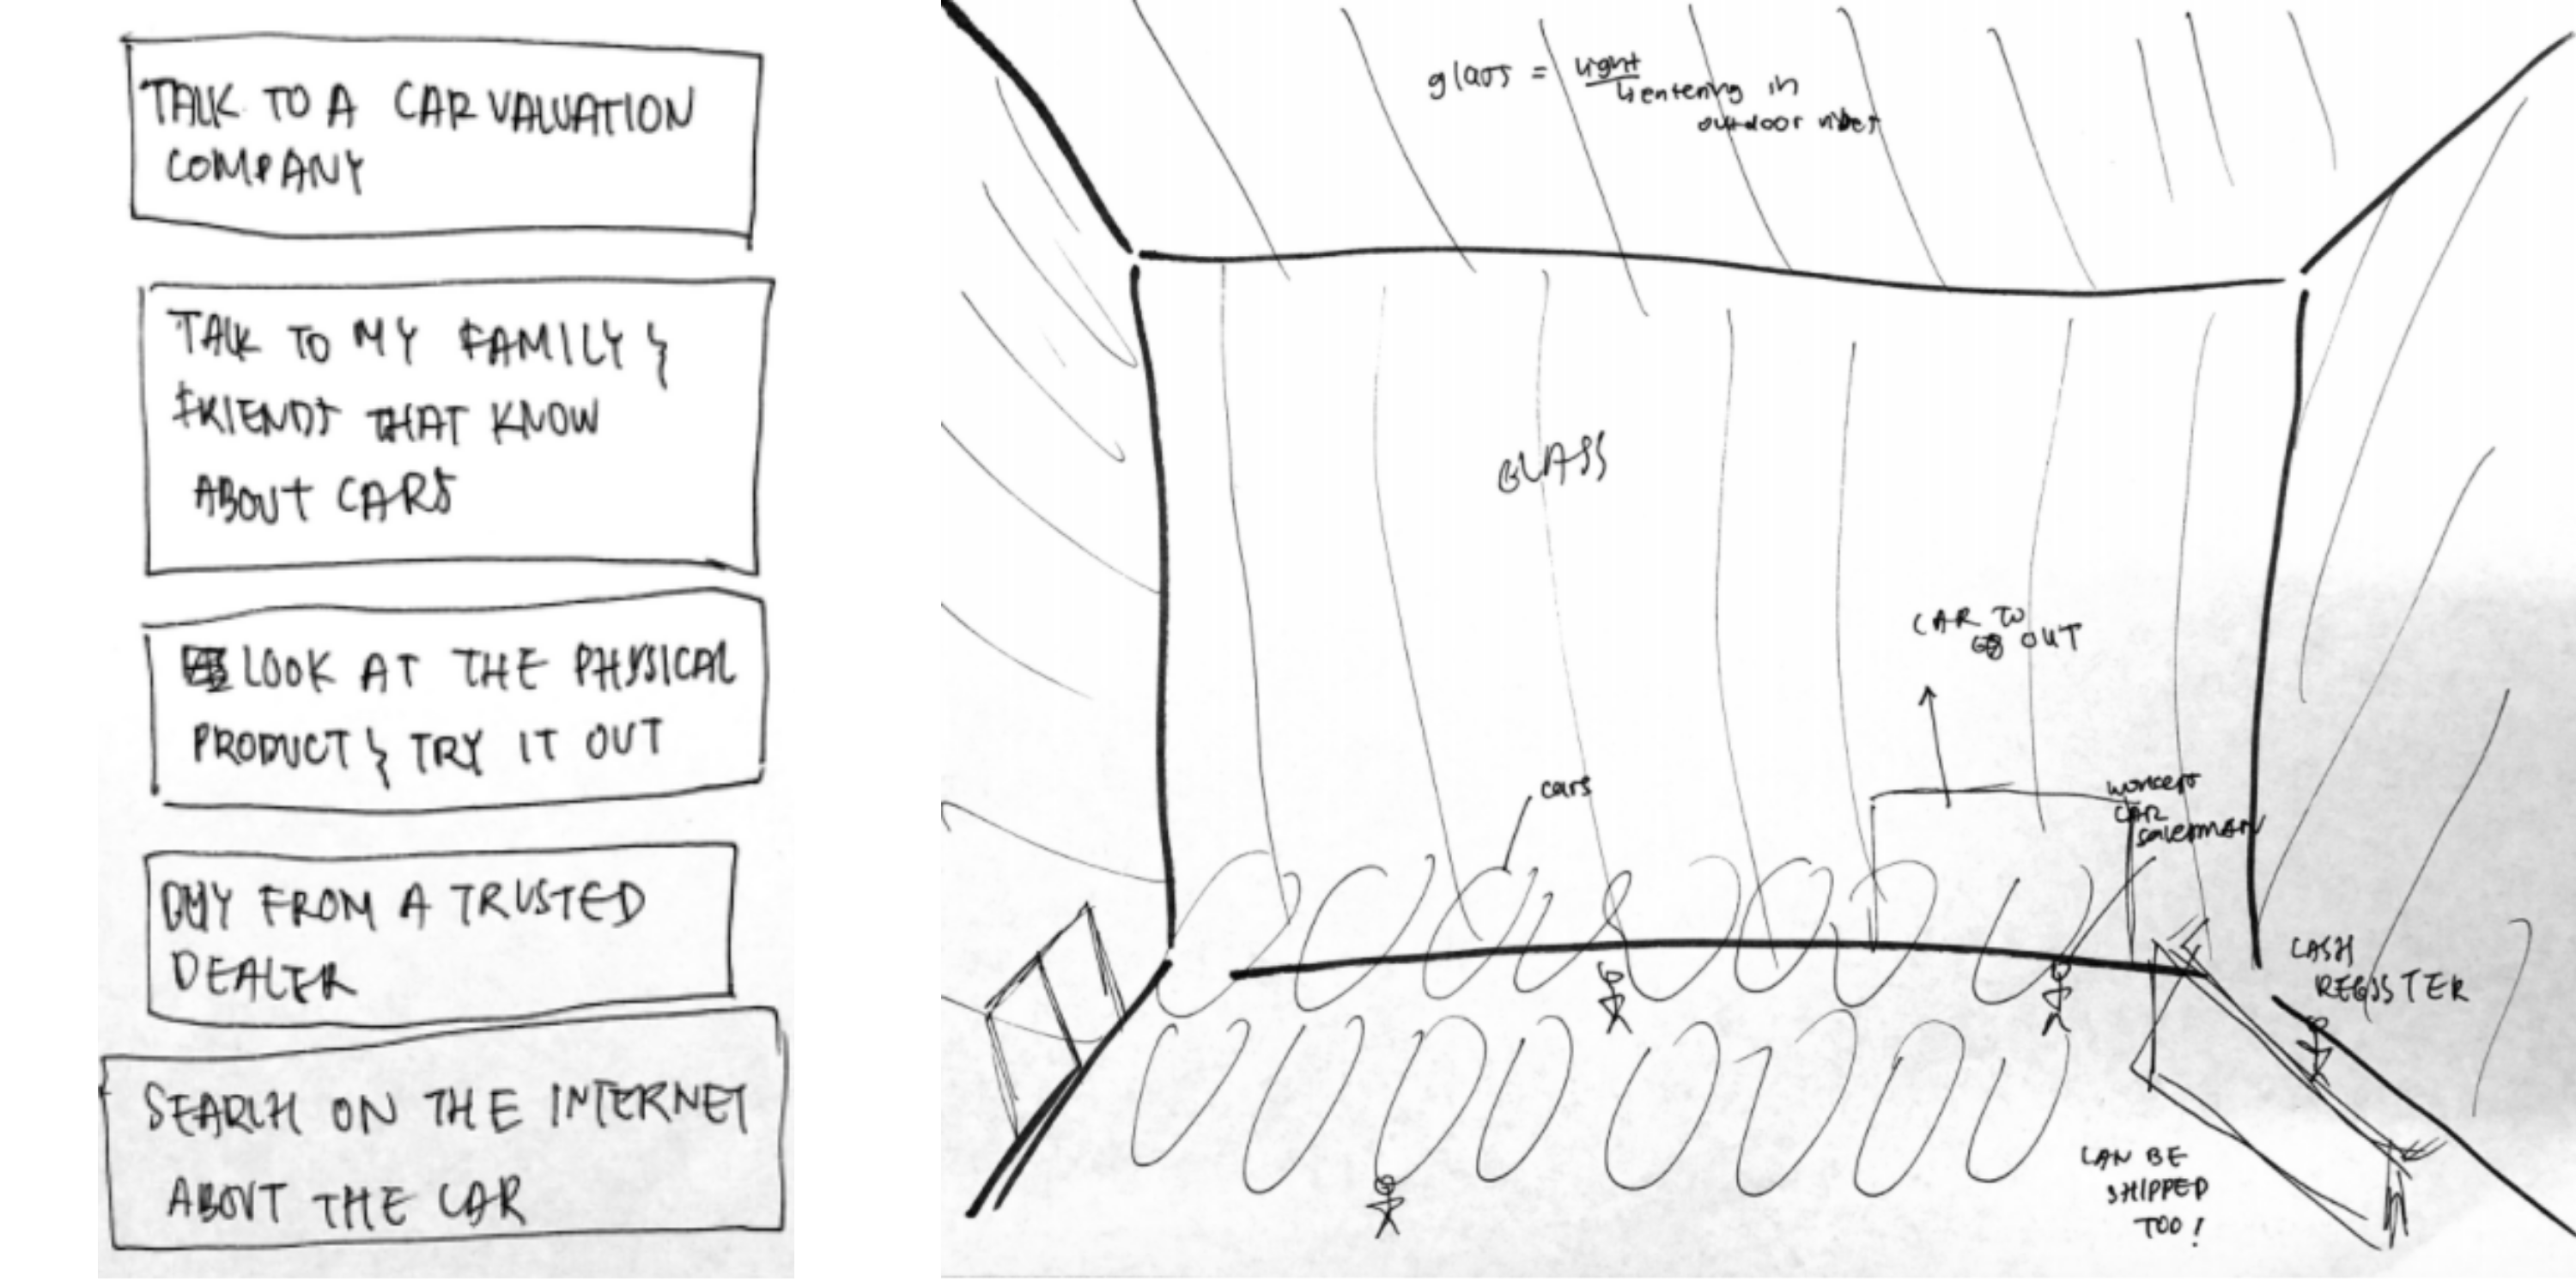 TALK TO A CAR VALUATION
COMPANY
TALK TO MY FAMILY &
FRIENDS THAT KNOW
ABOUT CARS
LOOK AT THE PHYSICAL
PRODUCT & TRY IT OUT
BUY FROM A TRUSTED
DEALER
SEARCH ON THE INTERNET
ABOUT THE CAR
glass = light
entering in
outdoor vibes
GLASS
CAR TO
GO OUT
cars
workers
CAR
salesman
CASH
REGISTER
CAN BE
SHIPPED
TOO!